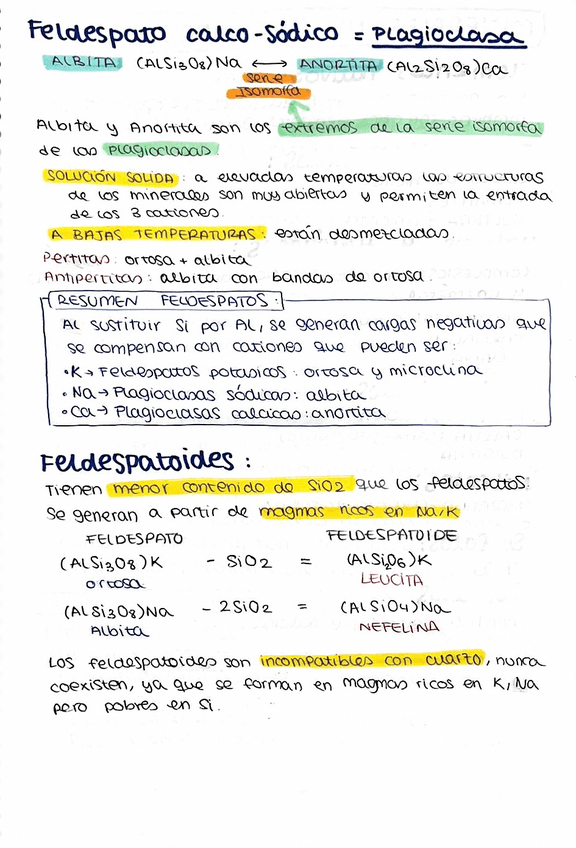 Feldespato calco-sódico = Plagioclasa
ALBITA (AlSi3O8)Na ⟷ ANORTITA (Al2Si2O8)Ca
serie
Isomorfa
Albita y Anortita son los extremos de la serie isomorfa
de las plagioclasas.
SOLUCIÓN SOLIDA: a elevadas temperaturas las estructuras
de los minerales son muy abiertas y permiten la entrada
de los 3 cationes.
A BAJAS TEMPERATURAS: están desmezcladas.
Pertitas: ortosa + albita
Antipertitas: albita con bandas de ortosa.
RESUMEN FELDESPATOS:
Al sustituir Si por Al, se generan cargas negativas que
se compensan con cationes que pueden ser:
• K → Feldespatos potasicos: ortosa y microclina
• Na → Plagioclasas sódicas: albita
• Ca → Plagioclasas calcicas: anortita
Feldespatoides:
Tienen menor contenido de SiO2 que los feldespatos.
Se generan a partir de magmas ricos en Na/K
FELDESPATO FELDESPATOIDE
(AlSi3O8)K - SiO2 = (AlSi2O6)K
ortosa LEUCITA
(AlSi3O8)Na - 2SiO2 = (AlSiO4)Na
Albita NEFELINA
Los feldespatoides son incompatibles con cuarzo, nunca
coexisten, ya que se forman en magmas ricos en K, Na
pero pobres en Si.